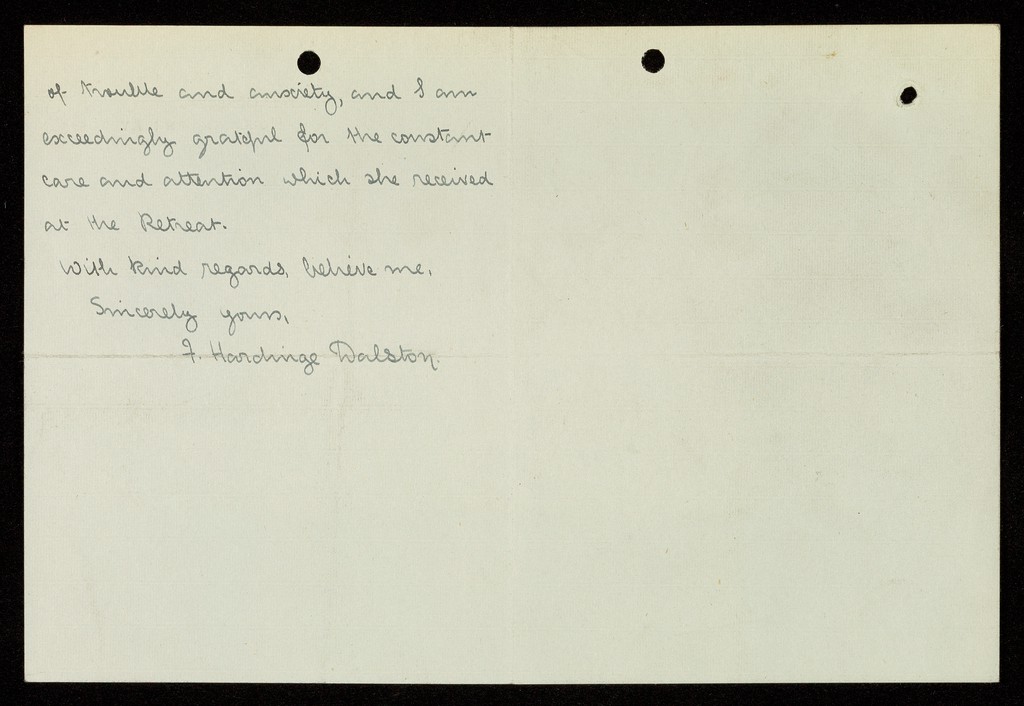 of trouble and anxiety, and I am
exceedingly grateful for the constant
care and attention which she received
at the Retreat.
With kind regards, believe me,
Sincerely yours,
F. Hardinge Dalston.